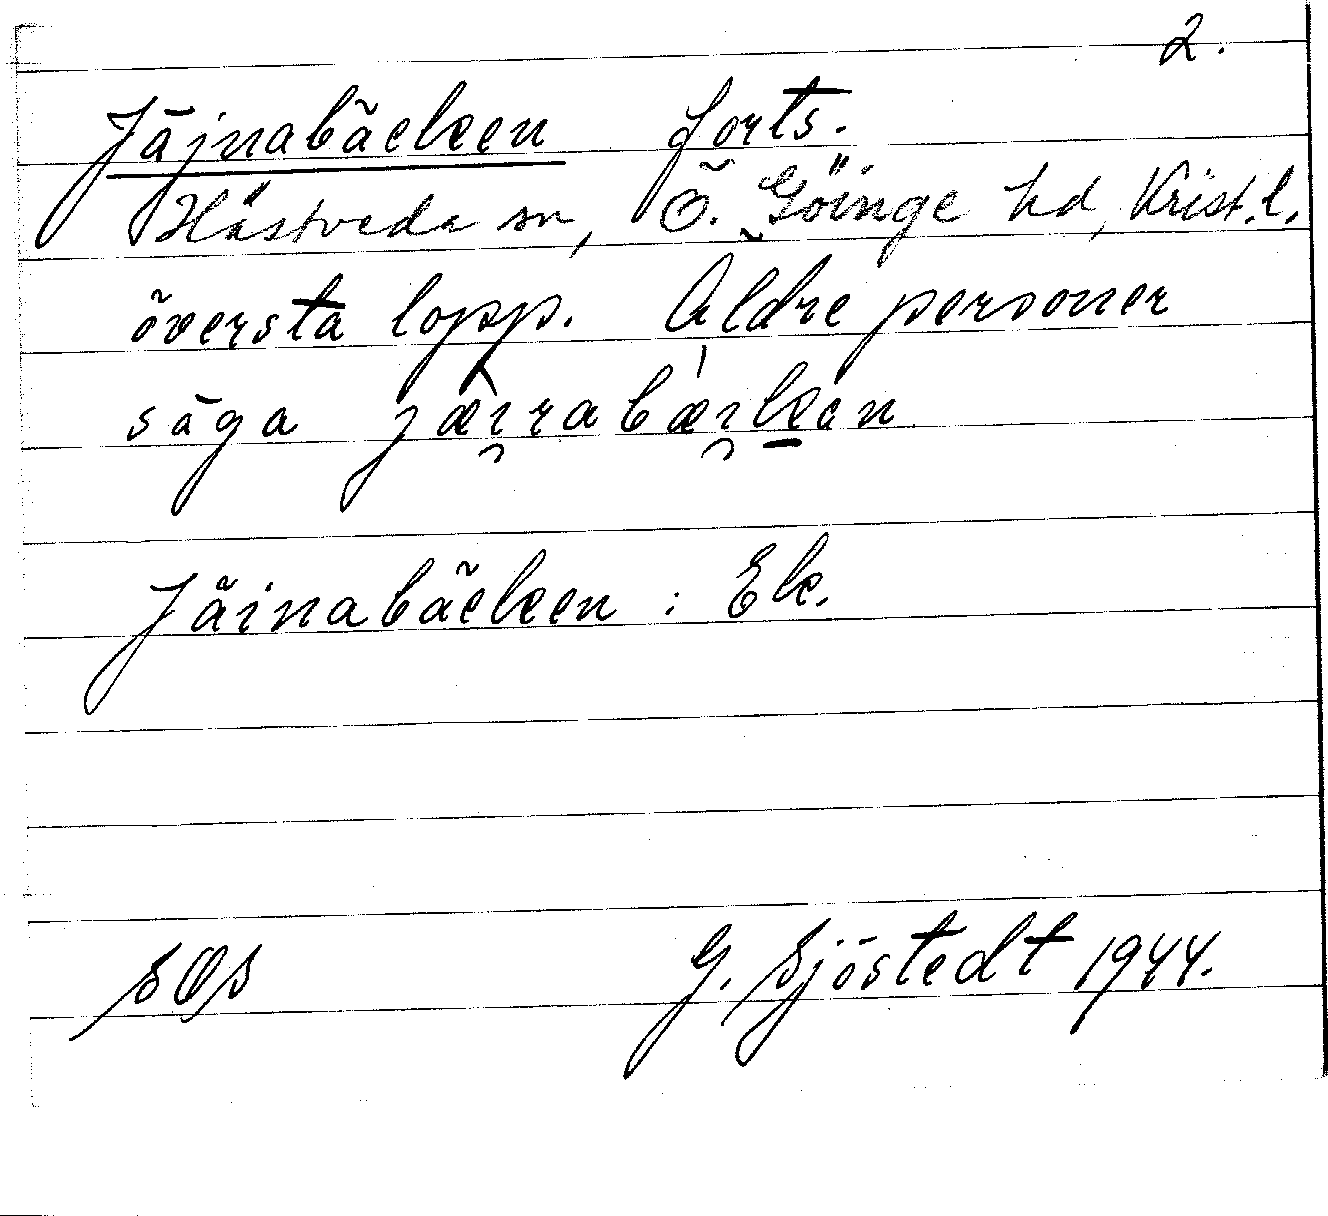 2.
Jäjnabäcken forts.
Hästveda sn, Ö. Göinge hd, Krist. l.
översta lopp. Äldre personer
säga
Jäinabäcken : Ek.
SOS G. Sjöstedt 1944.